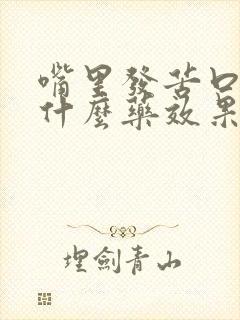 嘴里發苦口
什麼藥效果
埋劍青山